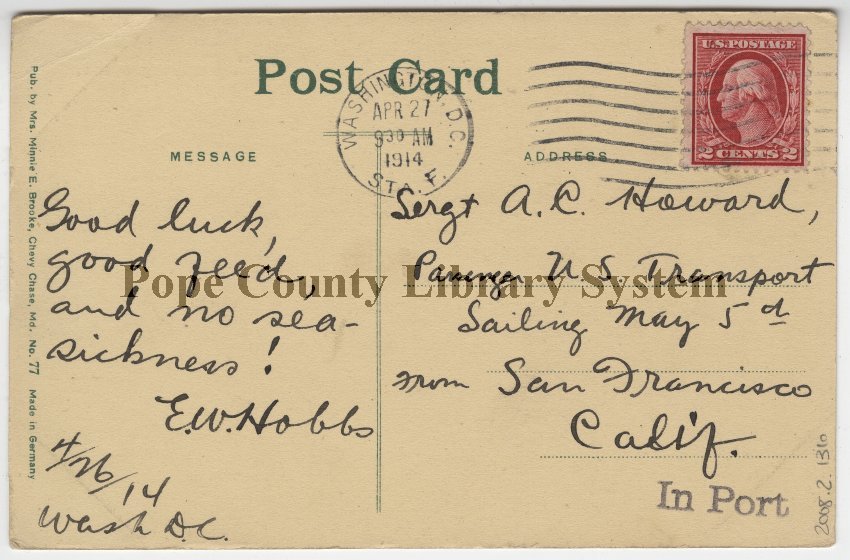 Post Card
WASHINGTON, D.C.
APR 27
9 30 AM
1914
STA. F.
U.S. POSTAGE
2 CENTS 2
MESSAGE
ADDRESS
Good luck,
good feed,
and no sea-
sickness!
E.W. Hobbs
4/26/14
Wash D.C.
Sergt A.C. Howard,
U S Transport
Sailing May 5th
from San Francisco
Calif.
In Port
Pope County Library System
Pub. by Mrs. Minnie E. Brooke, Chevy Chase, Md. No. 77 Made in Germany
2008.2.1316